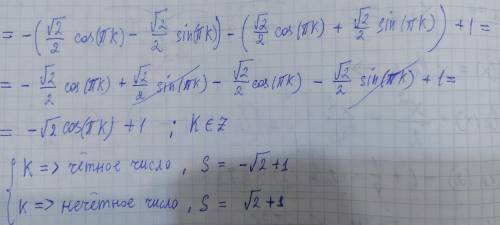 = -(√2/2 cos(πk) - √2/2 sin(πk)) - (√2/2 cos(πk) + √2/2 sin(πk)) + 1 =
= - √2/2 cos(πk) + √2/2 sin(πk) - √2/2 cos(πk) - √2/2 sin(πk) + 1 =
= -√2 cos(πk) + 1 ; K ∈ Z
{ K => чётное число, S = -√2+1
K => нечётное число, S = √2+1